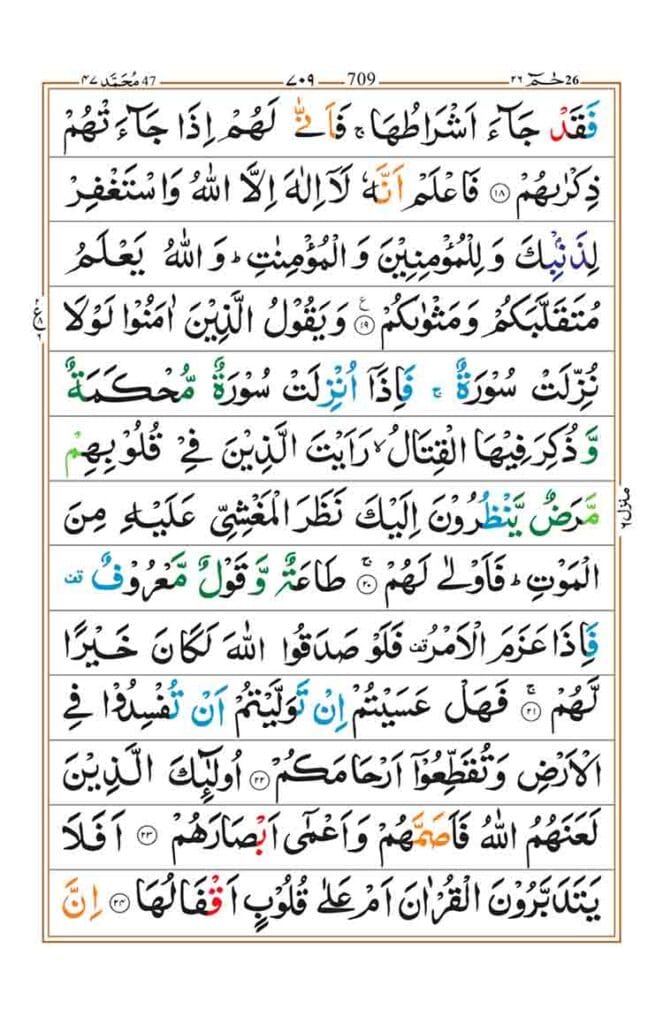 26 حٰمٓ ٢٦ 709 ٧٠٩ 47 مُحَمَّد ٤٧
فَقَدْ جَآءَ اَشْرَاطُهَا ۚ فَاَنّٰى لَهُمْ اِذَا جَآءَتْهُمْ
ذِكْرٰىهُمْ ﴿١٨﴾ فَاعْلَمْ اَنَّهٗ لَاۤ اِلٰهَ اِلَّا اللّٰهُ وَاسْتَغْفِرْ
لِذَنْۢبِكَ وَ لِلْمُؤْمِنِيْنَ وَ الْمُؤْمِنٰتِ ؕ وَ اللّٰهُ يَعْلَمُ
مُتَقَلَّبَكُمْ وَ مَثْوٰىكُمْ ﴿١٩﴾ ع وَ يَقُوْلُ الَّذِيْنَ اٰمَنُوْا لَوْلَا
نُزِّلَتْ سُوْرَةٌ ۚ فَاِذَاۤ اُنْزِلَتْ سُوْرَةٌ مُّحْكَمَةٌ
وَّ ذُكِرَ فِيْهَا الْقِتَالُ ۙ رَاَيْتَ الَّذِيْنَ فِيْ قُلُوْبِهِمْ
مَّرَضٌ يَّنْظُرُوْنَ اِلَيْكَ نَظَرَ الْمَغْشِيِّ عَلَيْهِ مِنَ
منزل ٦
الْمَوْتِ ؕ فَاَوْلٰى لَهُمْ ﴿٢٠﴾ ۚ طَاعَةٌ وَّ قَوْلٌ مَّعْرُوْفٌ قف
فَاِذَا عَزَمَ الْاَمْرُ قف فَلَوْ صَدَقُوا اللّٰهَ لَكَانَ خَيْرًا
لَّهُمْ ﴿٢١﴾ ۚ فَهَلْ عَسَيْتُمْ اِنْ تَوَلَّيْتُمْ اَنْ تُفْسِدُوْا فِي
الْاَرْضِ وَ تُقَطِّعُوْۤا اَرْحَامَكُمْ ﴿٢٢﴾ اُولٰٓئِكَ الَّذِيْنَ
لَعَنَهُمُ اللّٰهُ فَاَصَمَّهُمْ وَ اَعْمٰۤى اَبْصَارَهُمْ ﴿٢٣﴾ اَفَلَا
يَتَدَبَّرُوْنَ الْقُرْاٰنَ اَمْ عَلٰى قُلُوْبٍ اَقْفَالُهَا ﴿٢٤﴾ اِنَّ